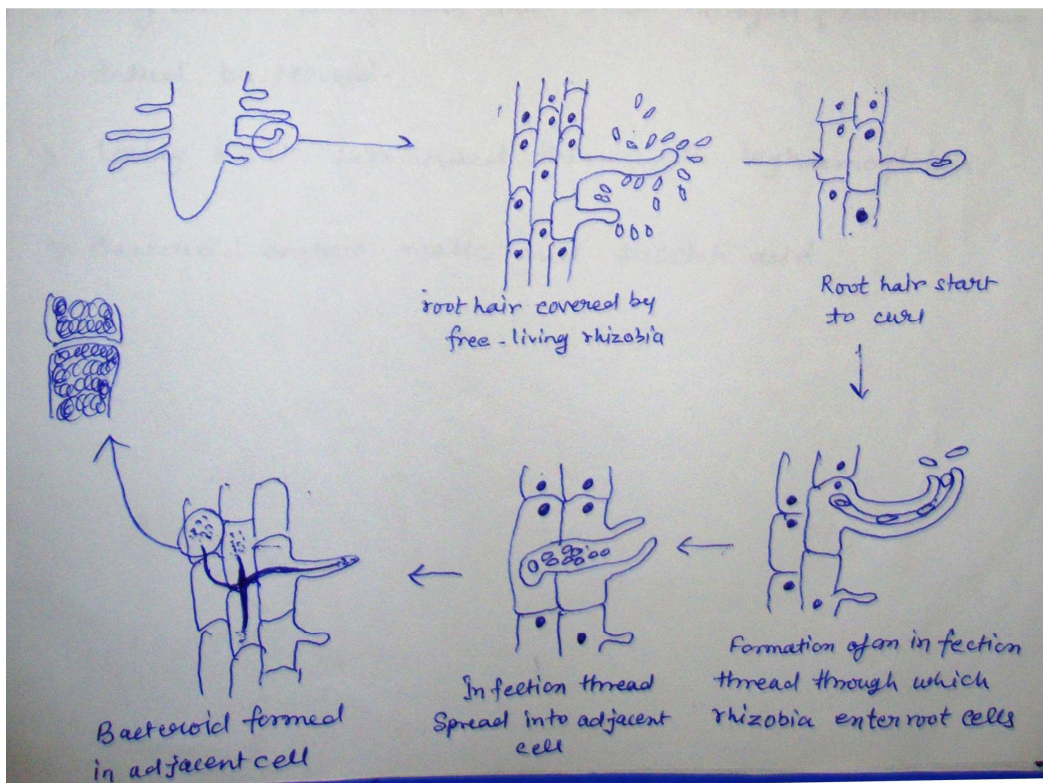 root hair covered by
free-living rhizobia
Root hair start
to curl
Formation of an infection
thread through which
rhizobia enter root cells
Infection thread
Spread into adjacent
cell
Bacteroid formed
in adjacent cell